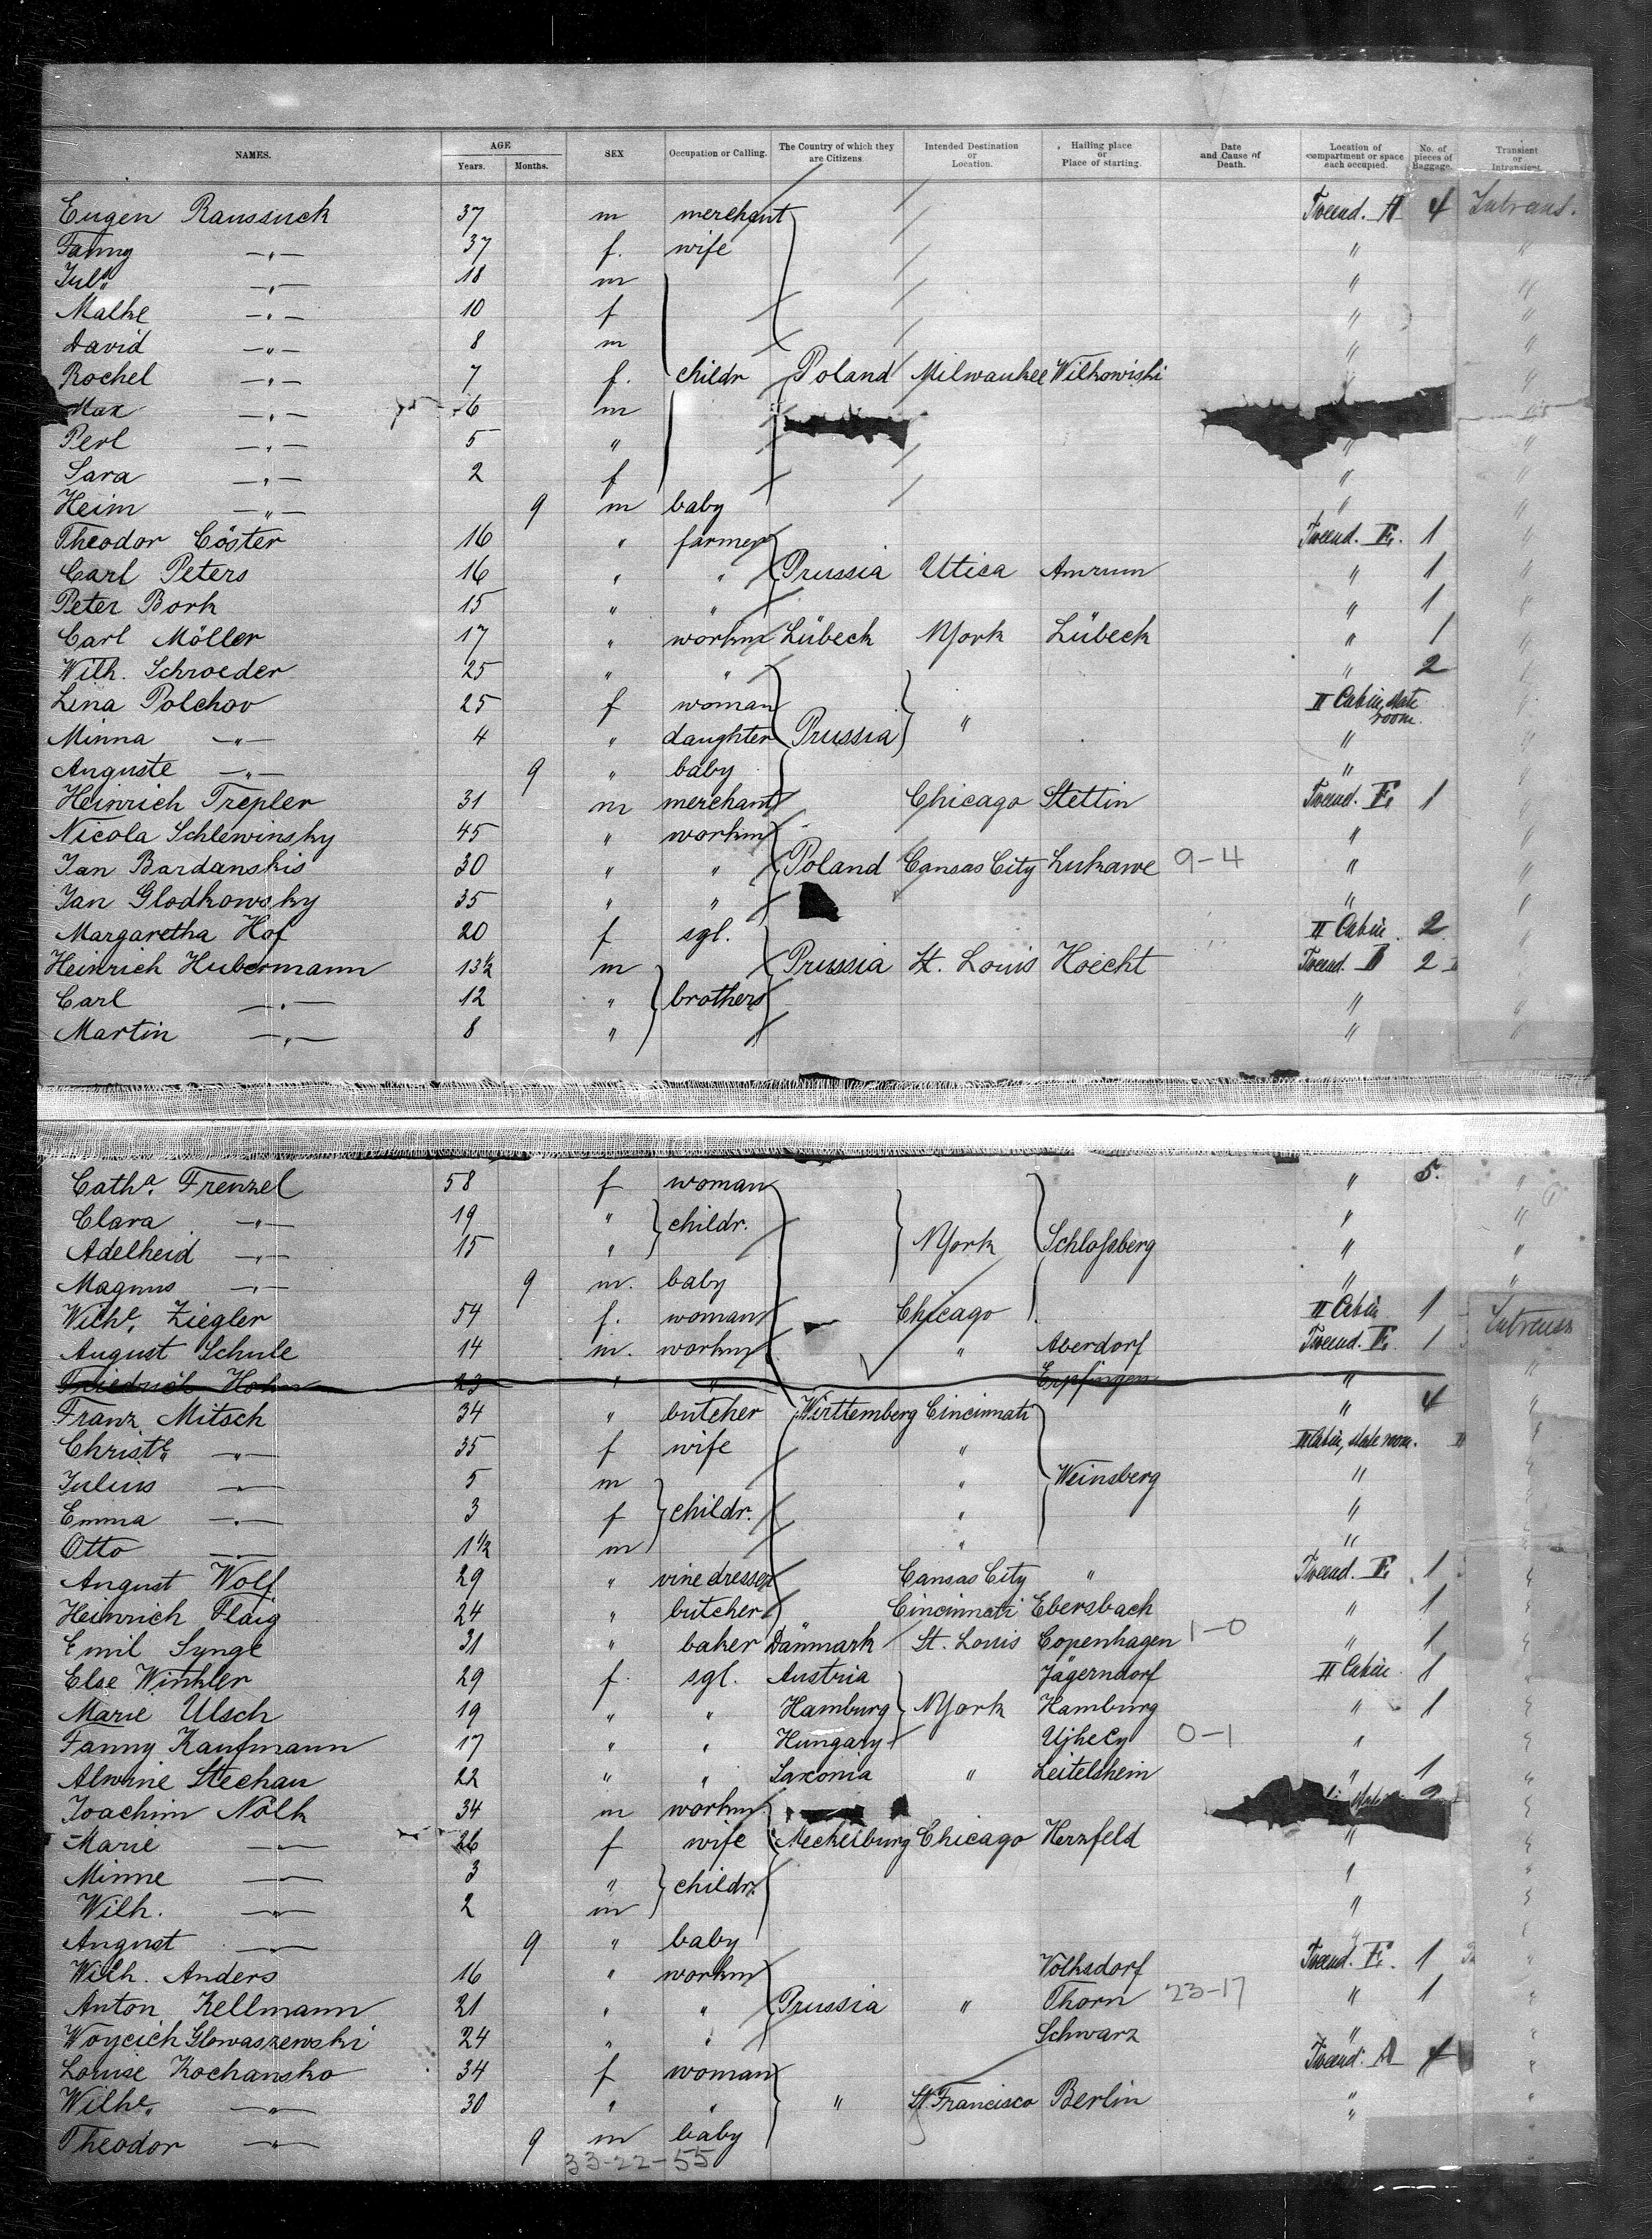 NAMES. AGE Years. Months. SEX Occupation or Calling. The Country of which they are Citizens Intended Destination or Location. Hailing place or Place of starting. Date and Cause of Death. Location of compartment or space each occupied. No. of pieces of Baggage. Transient or Intransient.
Eugen Raussuck 37 m merchant Tweend. A 4 Intrans.
Fanny —"— 37 f. wife " "
Juls —"— 18 m " "
Malke —"— 10 f " "
David —"— 8 m " "
Rochel —"— 7 f. childr Poland Milwaukee Wilkowishi "
Max —"— 6 m "
Perl —"— 5 " " "
Sara —"— 2 f " "
Heim —"— 9 m baby " "
Theodor Cöster 16 " farmer Tweend. E. 1 "
Carl Peters 16 " " Prussia Utica Amrum " 1 "
Peter Bork 15 " " " 1 "
Carl Möller 17 " workm Lübeck NYork Lübeck " 1 "
Wilh. Schroeder 25 " " " 2 "
Lina Polchov 25 f woman " II Cabin, state room. "
Minna —"— 4 " daughter Prussia " "
Auguste —"— 9 " baby " "
Heinrich Trepler 31 m merchant Chicago Stettin Tweend. E. 1 "
Nicola Schlewinsky 45 " workm " "
Jan Bardanskis 30 " " Poland Cansas City Lukawe 9-4 " "
Jan Glodkowsky 35 " " " "
Margaretha Hof 20 f sgl. II Cabin. 2 "
Heinrich Hubermann 13½ m Prussia St. Louis Hoecht Tweend. 2
Carl —"— 12 " brothers " "
Martin —"— 8 " " "
Catha. Frenzel 58 f woman " 5. "
Clara —"— 19 " childr. " "
Adelheid —"— 15 " NYork Schloßberg " "
Magnus —"— 9 m. baby " "
Wilhe. Ziegler 54 f. woman Chicago II Cabin 1 Intrans
August Schule 14 m. workm " Aberdorf Tweend. E. 1
Friedrich Hohn 23 " " Erpfingen " "
Franz Mitsch 34 " butcher Württemberg Cincinnati " 4 "
Christe. —"— 35 f wife " II Cabin, state room. "
Julius —"— 5 m " Weinsberg " "
Emma —"— 3 f childr. " " "
Otto —"— 1½ m " " "
August Wolf 29 " vinedresser Cansas City " Tweend. E. 1 "
Heinrich Flaig 24 " butcher " Cincinnati Ebersbach " 1 "
Emil Synge 31 " baker Dänmark St. Louis Copenhagen 1-0 " 1 "
Else Winkler 29 f. sgl. Austria Jägerndorf II Cabin. 1 "
Marie Ulsch 19 " " Hamburg NYork Hamburg " 1 "
Fanny Kaufmann 17 " " Hungary Ujhely 0-1 " "
Alwine Stechau 22 " " Saxonia " Leitelshein " 1 "
Joachim Nölk 34 m workm. "
Marie —"— 26 f wife Mecklelburg Chicago Herzfeld " "
Minne —"— 3 " childr. " "
Wilh. —"— 2 m " "
August —"— 9 " baby " "
Wilh. Anders 16 " workm Volksdorf Tweend. E. 1 "
Anton Kellmann 21 " " Prussia " Thorn 23-17 " 1 "
Woycich Glowaszewski 24 " " Schwarz " "
Louise Kochansko 34 f woman Tweend. A 4 "
Wilhe. —"— 30 " " " St. Francisco Berlin " "
Theodor —"— 9 m baby " "
33-22-55